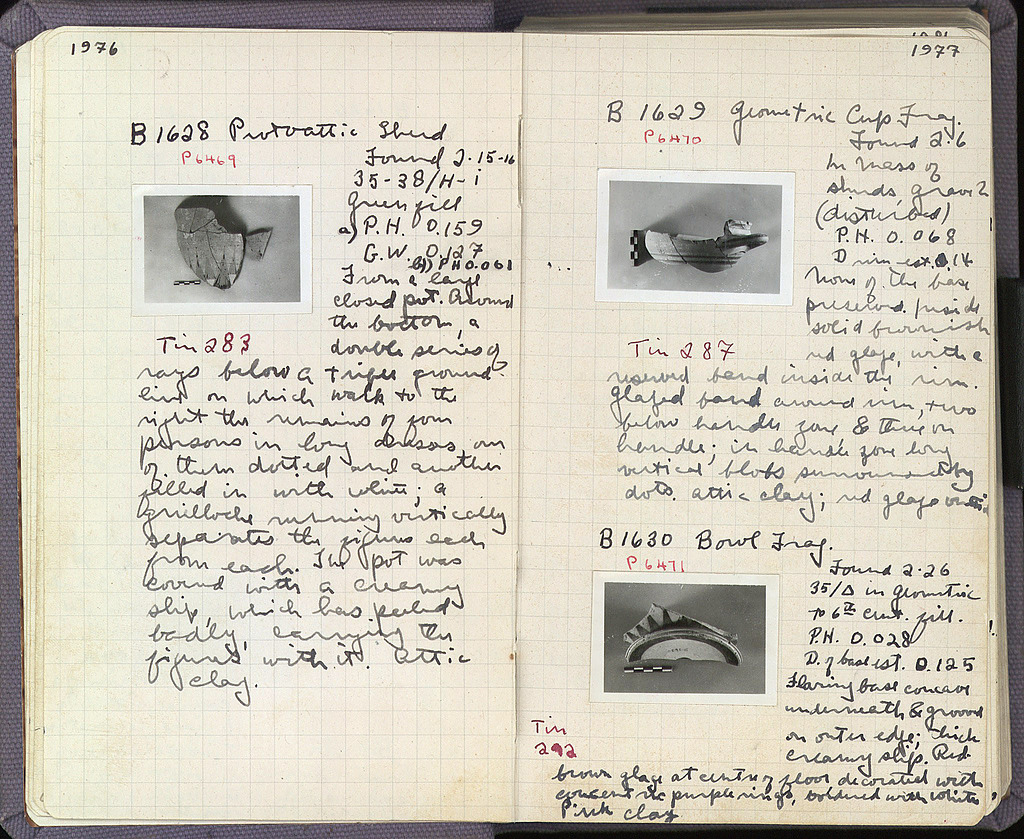 1976
B 1628 Protoattic Sherd
P 6469
Found 2·15-16
35-38/H-i
Green fill
a) P.H. 0.159
G.W. 0.127
b) P.H 0.061
From a large
closed pot. Around
the bottom, a
double series of
Tin 283
rays below a triple ground-
line on which walk to the
right the remains of four
persons in long dresses, one
of them dotted and another
filled in with white; a
guilloche running vertically
separates the figures each
from each. The pot was
covered with a creamy
slip, which has peeled
badly, carrying the
figures with it. Attic
clay.
1977
B 1629 Geometric Cup Frag.
P 6470
Found 2·6
In mess of
sherds, grave 2
(disturbed)
P.H. 0.068
D rim est. 0.14
None of the base
preserved. Inside
solid brownish
red glaze, with a
Tin 287
reserved band inside the rim.
Glazed band around rim, two
below handle zone & three on
handle; in handle zone long
vertical blobs surrounded by
dots. Attic clay; red glaze outside
B 1630 Bowl Frag.
P 6471
Found 2·26
35/Δ in geometric
to 6th cent. fill.
P.H. 0.028
D. of base est. 0.125
Flaring base concave
underneath & grooved
on outer edge; thick
creamy slip. Red-
Tin
292
brown glaze at centre of floor decorated with
concentric purple rings, bordered with white
Pink clay